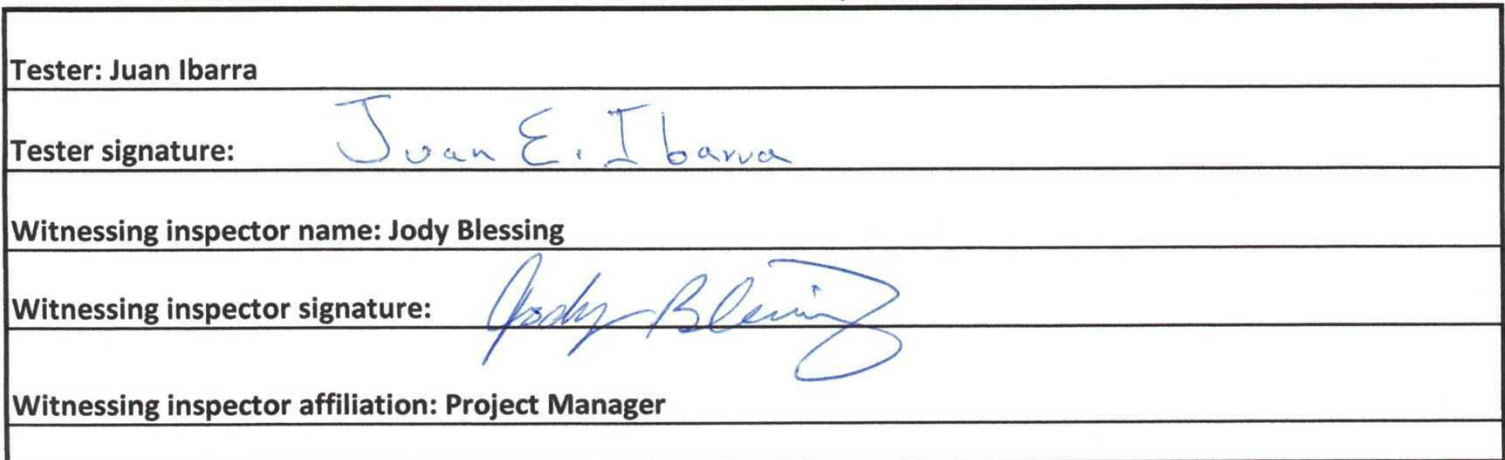 Tester: Juan Ibarra
Tester signature: Juan E. Ibarra
Witnessing inspector name: Jody Blessing
Witnessing inspector signature: Jody Blessing
Witnessing inspector affiliation: Project Manager